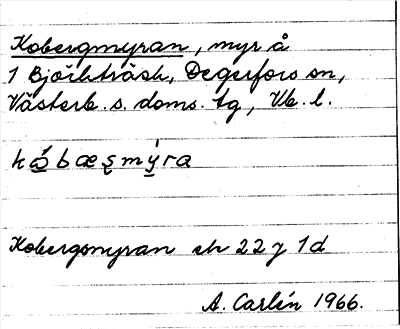 Kobergmyran, myr å
1 Björkträsk, Degerfors sn,
Västerb. s. doms. tg, Vb. l.
kå̱bæs̨mý̱ra
Kobergsmyran ek 22 J 1d
A. Carlén 1966.